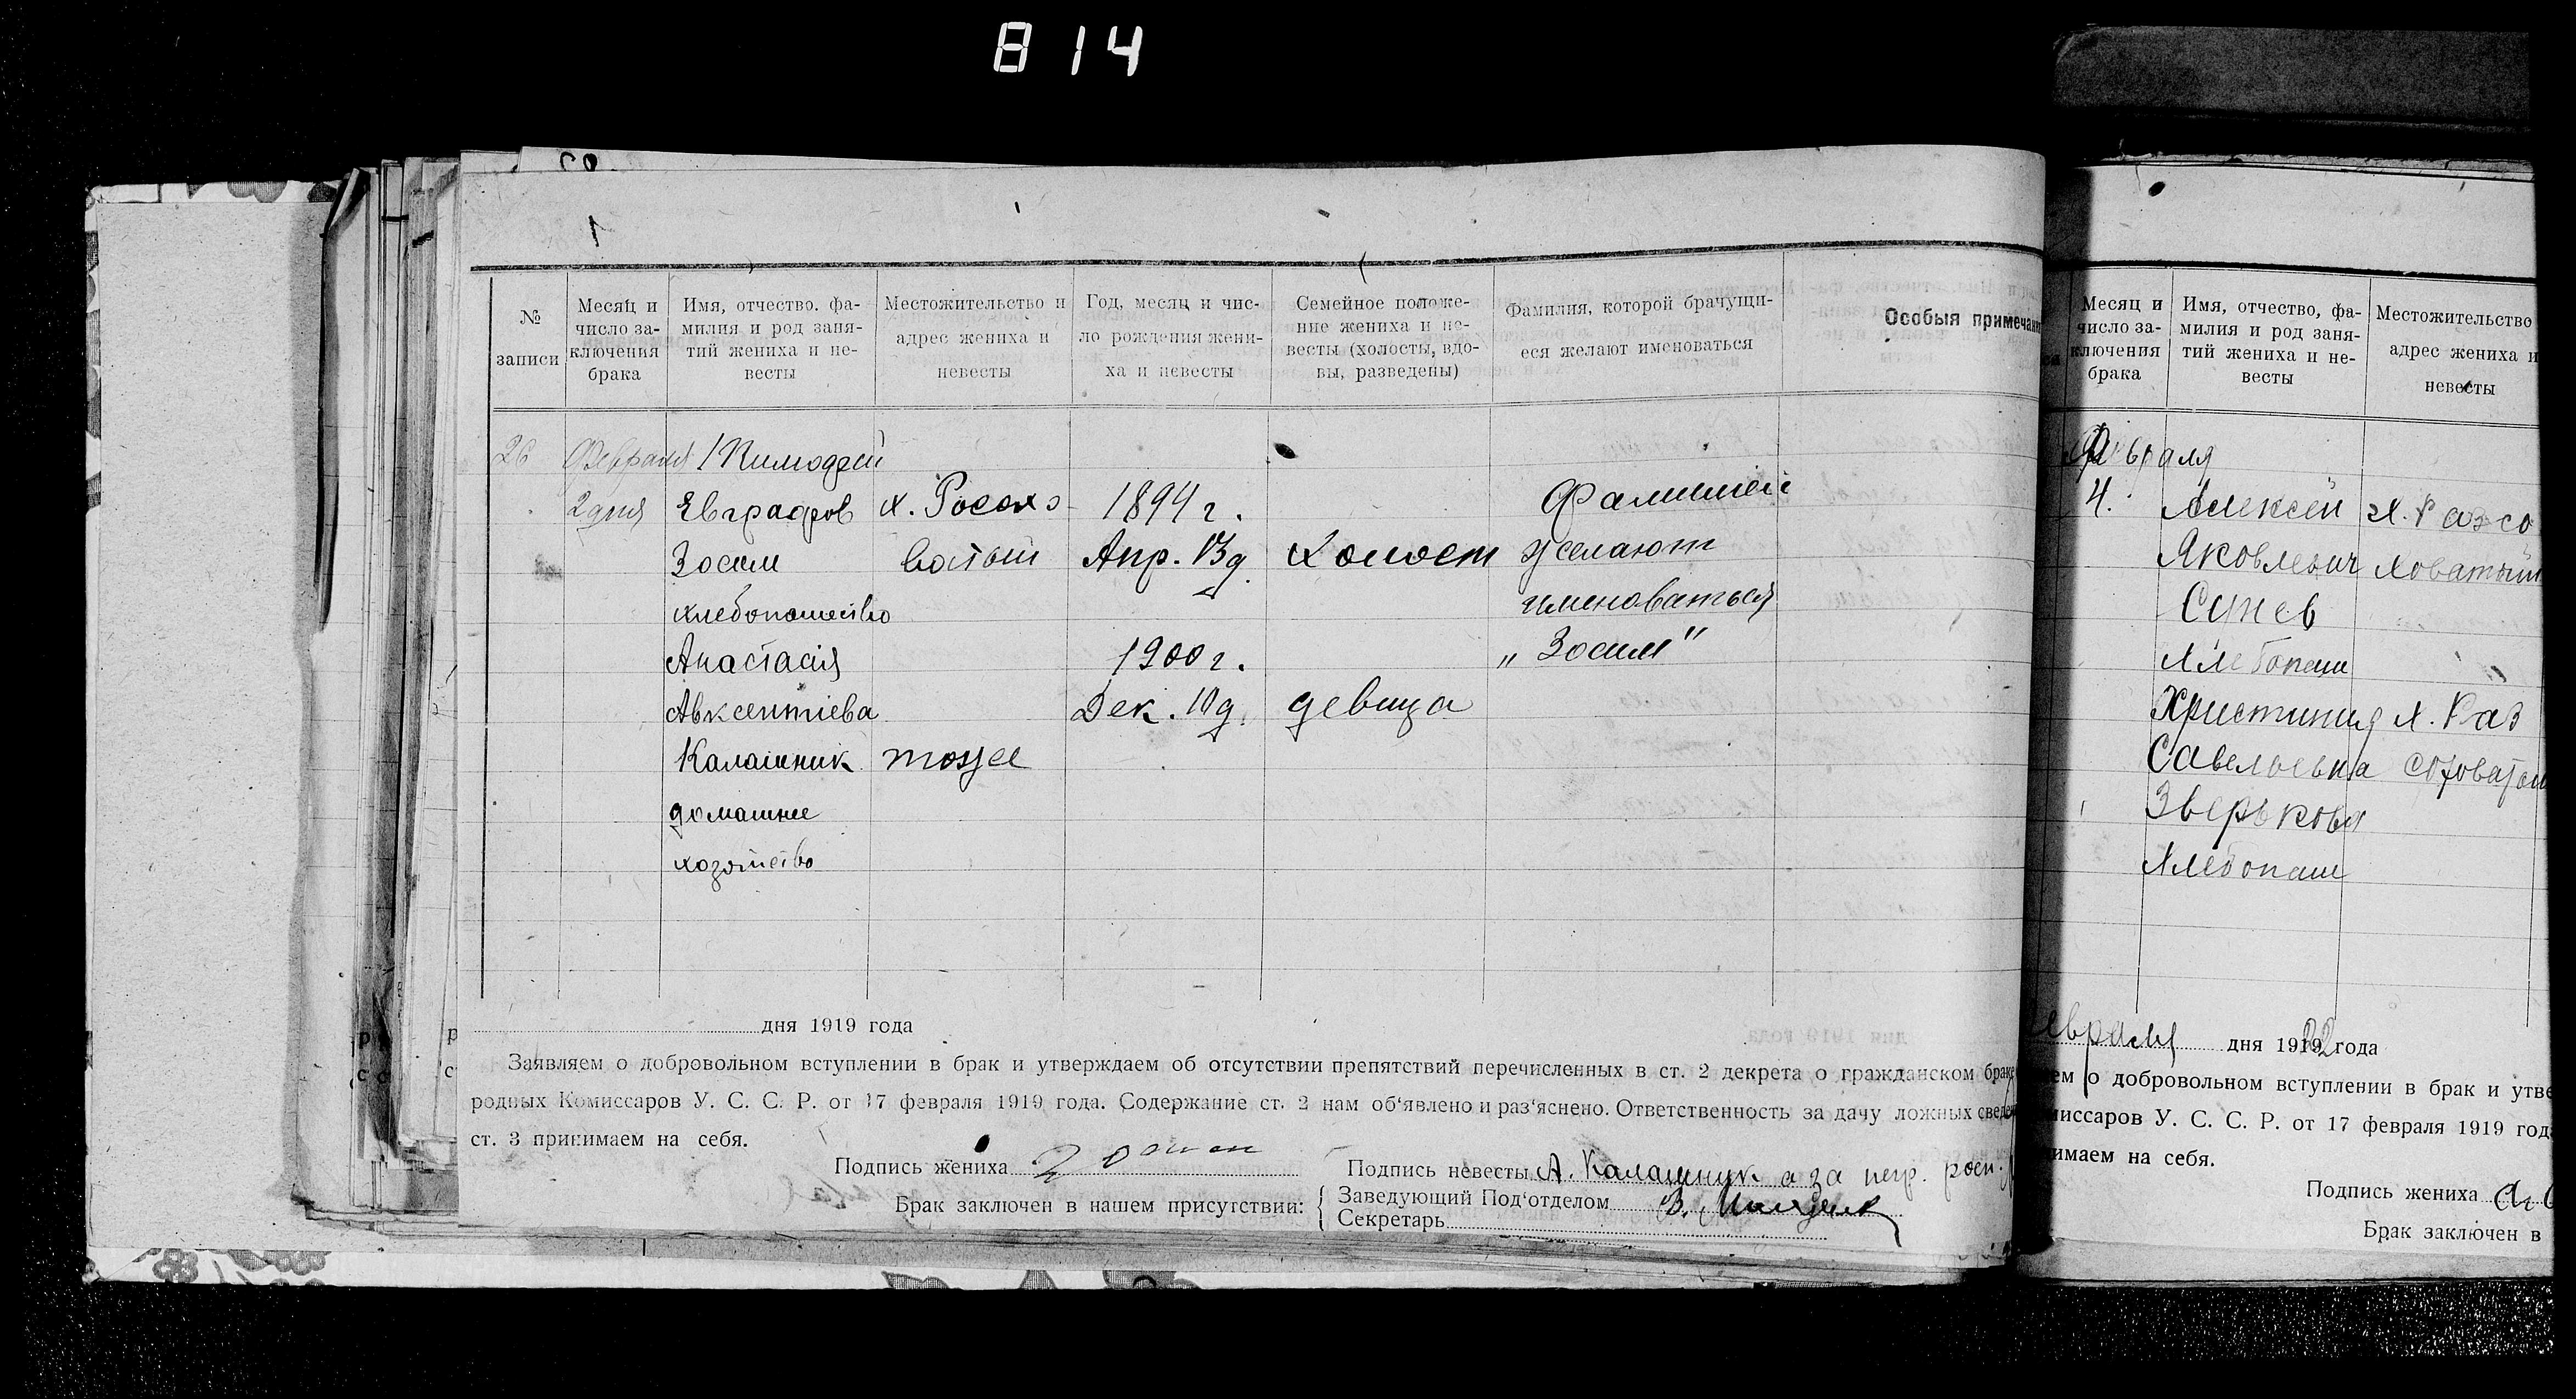 814
№ записи
Месяц и число заключения брака
Имя, отчество. фамилия и род занятий жениха и невесты
Местожительство и адрес жениха и невесты
Год, месяц и число рождения жениха и невесты
Семейное положение жениха и невесты (холосты, вдовы, разведены)
Фамилия, которой брачущиеся желают именоваться
Особыя примечан
26 Февраля
2 дня Евграфов х. Росохо- 1894 г. Фамилией
Зосим ватый Апр. 13 д. Холост желают
хлебопашество именоваться
Анастасія 1900 г. „Зосим"
Авксентіева Дек. 10 д. девица
Калашник тоже
домашнее
хозяйство
дня 1919 года
Заявляем о добровольном вступлении в брак и утверждаем об отсутствии препятствий перечисленных в ст. 2 декрета о гражданском браке
родных Комиссаров У. С. С. Р. от 17 февраля 1919 года. Содержание ст. 2 нам об‘явлено и раз‘яснено. Ответственность за дачу ложных сведе
ст. 3 принимаем на себя.
Подпись жениха Подпись невесты А. Калашник а за негр. росп.
Брак заключен в нашем присутствии: Заведующий Под‘отделом
Секретарь
Месяц и число заключения брака
Имя, отчество, фамилия и род занятий жениха и невесты
Местожительство адрес жениха и невесты
Февраля
4. Алексей х. Разсо
Яковлевич ховатый
Сучев
Хлебопаш
Христиния х. Раз
Савельевна соховатом
Зверькова
Хлебопаш
евраля дня 1922 года
ем о добровольном вступлении в брак и утве
миссаров У. С. С. Р. от 17 февраля 1919 год
нимаем на себя.
Подпись жениха
Брак заключен в